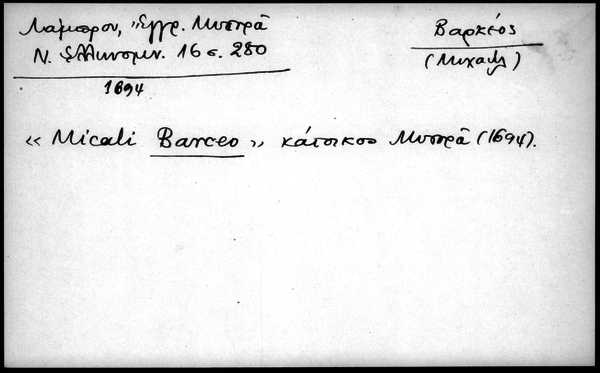 Λάμπρου, Ἔγγρ. Μυστρᾶ
Ν. Ἑλληνομν. 16 σ. 280
1694
Βαρκέος
(Μιχαήλ)
« Micali Barceo », κάτοικος Μυστρᾶ (1694).